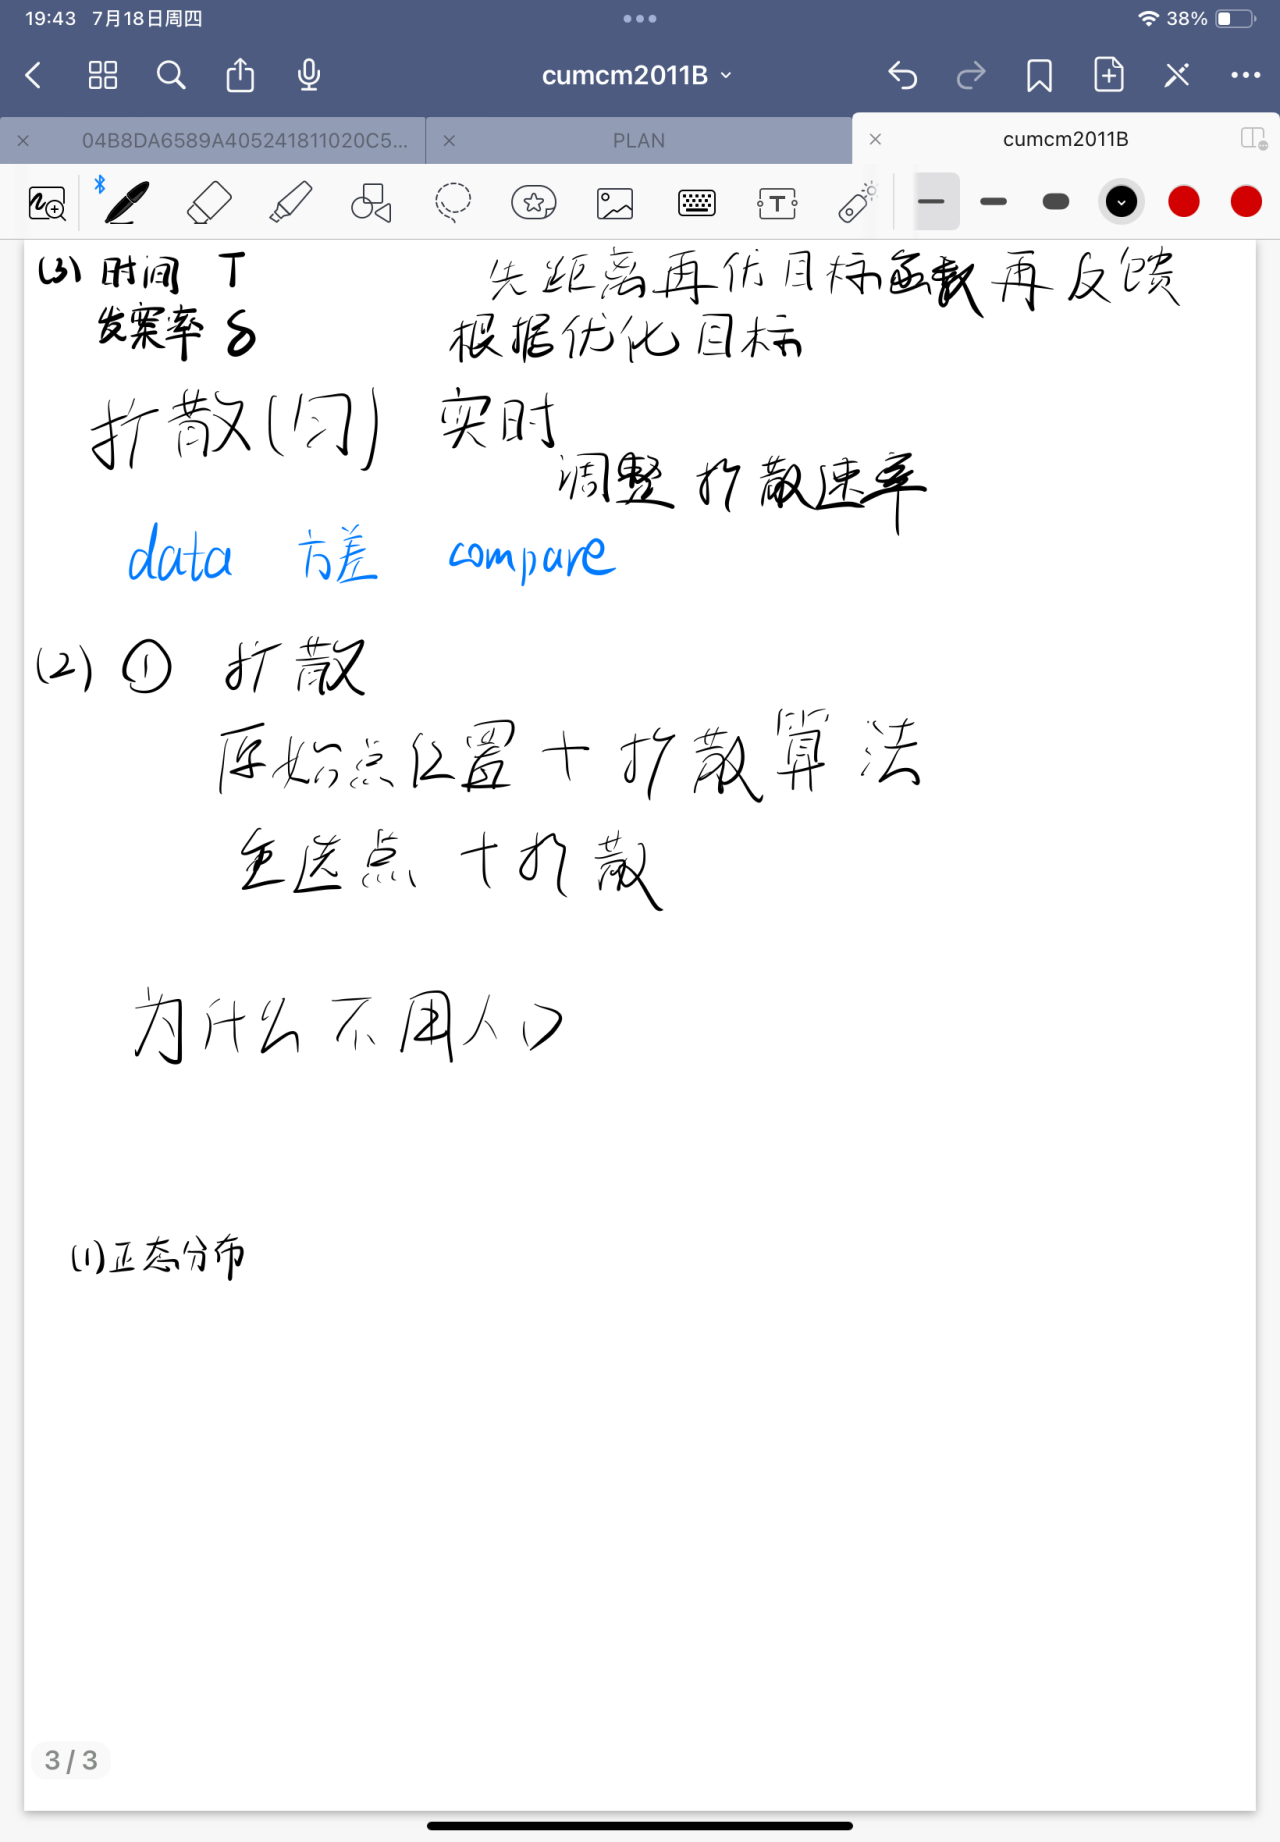 19:43 7月18日周四
38%
cumcm2011B
04B8DA6589A405241811020C5...
PLAN
cumcm2011B
(3) 时间 T
先距离再优目标函数再反馈
发案率 δ
根据优化目标
扩散(匀) 实时
调整扩散速率
data 方差 compare
(2) ① 扩散
原始点位置+扩散算法
重选点+扩散
为什么不用人口
(1)正态分布
3/3